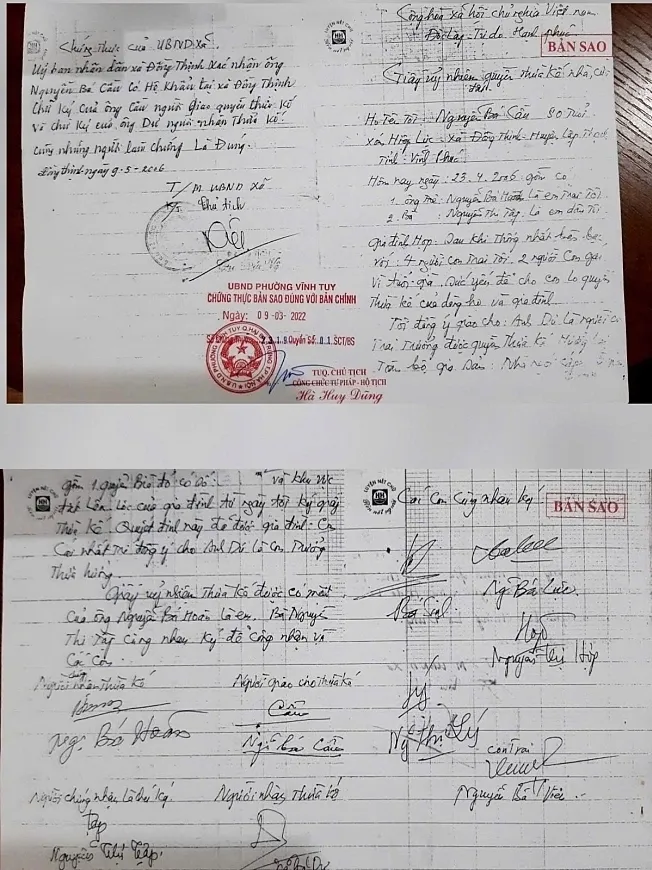 Chứng thực của UBND Xã.
Uỷ ban nhân dân xã Đồng Thịnh xác nhận ông
Nguyễn Bá Cầu có Hộ Khẩu tại xã Đồng Thịnh
chữ ký của ông Cầu người giao quyền thừa kế
và chữ ký của ông Dư người nhận thừa kế.
cùng những người làm chứng Là Đúng.
Đồng thịnh ngày 9-5-2006
T/M UBND Xã
Chủ tịch
UBND PHƯỜNG VĨNH TUY
CHỨNG THỰC BẢN SAO ĐÚNG VỚI BẢN CHÍNH
Ngày: 09-03-2022
Quyển Số: 01 SCT/BS
TUQ. CHỦ TỊCH
CÔNG CHỨC TƯ PHÁP - HỘ TỊCH
Hà Huy Dũng
Cộng hòa xã hội chủ nghĩa Việt nam
Độc Lập - Tự do - Hạnh phúc
BẢN SAO
Giấy uỷ nhiệm quyền thừa kế nhà,
Họ tên tôi: Nguyễn Bá Cầu 80 tuổi
Xóm Hiệp Lực - Xã Đồng Thịnh - Huyện Lập Thạch
Tỉnh: Vĩnh Phúc
Hôm nay ngày: 23.4.2006 gồm có
1. ông: Nguyễn Bá Hoàn Là em Trai Tôi
2. Bà: Nguyễn Thị Tập. là em dâu Tôi
gia đình Họp. Sau khi Thống nhất
với: 4 người con Trai Tôi. 2 người Con gái
Vì tuổi già. Sức yếu để cho con lo quyền
Thừa kế của dòng họ và gia đình
Tôi đồng ý giao cho: Anh Dư Là người
Trai Trưởng được quyền Thừa kế
gồm 1 quyển Bìa đỏ có và khu vực
của gia đình từ ngày tôi Ký giấy
Thừa kế. Quyết định này đã được gia đình. Con
Cái nhất trí đồng ý cho Anh Dư Là Con Trưởng
Thừa hưởng.
Giấy uỷ nhiệm Thừa kế được có mặt
Của ông Nguyễn Bá Hoàn Là em. Bà Nguyễn
Thị Tập Cùng nhau Ký để Công nhận và
Các Con.
Người nhận Thừa kế
Người giao cho Thừa kế
Cầu
Ng. Bá Hoàn
Ng Bá Cầu
Người chứng nhận
Người nhận Thừa kế
Tập
Nguyễn Thị Tập.
Các Con Cùng nhau Ký
BẢN SAO
Ng Bá Lực.
Hợp
Nguyễn Thị Hợp
Ng Thị Lý
Con trai
Nguyễn Bá Viên